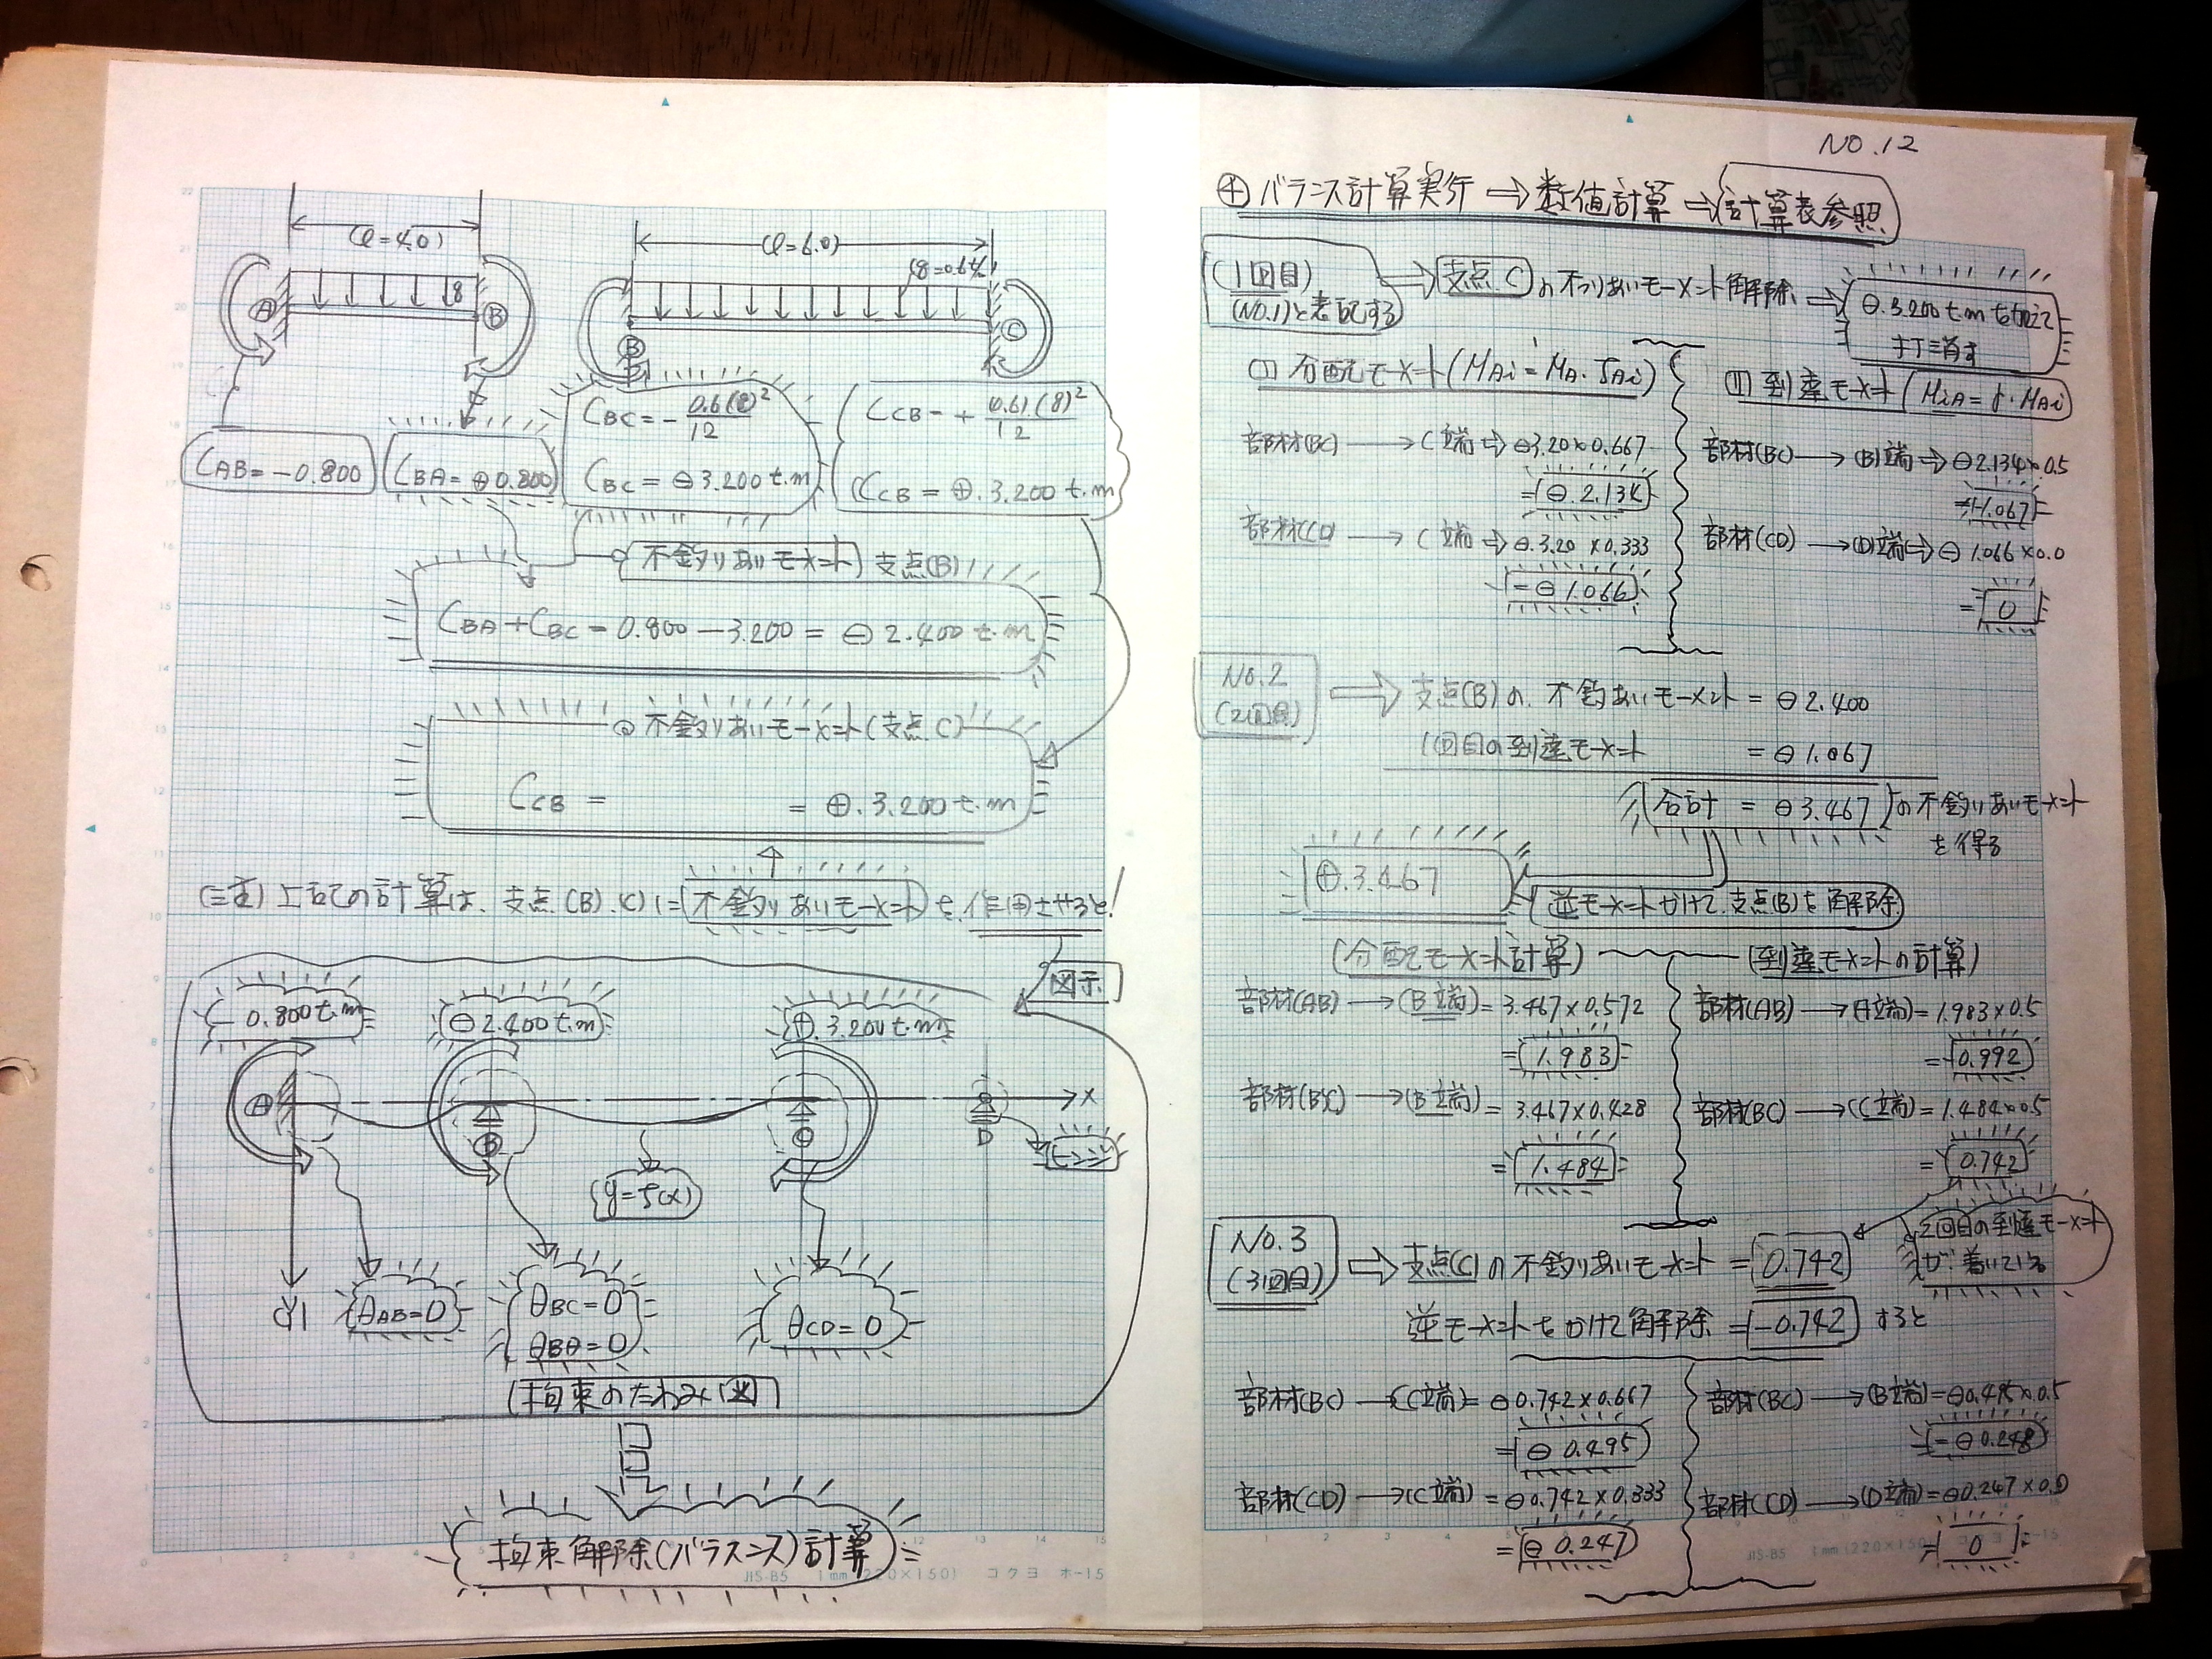 (l=4.0)
(l=6.0)
(q=0.6t/m)
Ⓐ
q
Ⓑ
Ⓑ
Ⓒ
CAB=-0.800
CBA=⊕0.800
CBC=-0.6(8)²/12
CBC=⊖3.200t.m
CCB=+0.6(8)²/12
CCB=⊕.3.200t.m
不釣りあいモーメント 支点(B)
CBA+CBC=0.800-3.200=⊖2.400t.m
◎不釣りあいモーメント(支点C)
CCB = = ⊕.3.200t.m
(注)上記の計算は、支点(B).(C)に不釣りあいモーメントを作用させると!
図示
-0.800t.m
⊖2.400t.m
⊕.3.200t.m
Ⓐ
Ⓑ
Ⓒ
D
x
ヒンジ
y=f(x)
y
θAB=0
θBC=0
θBA=0
θCD=0
(拘束のたわみ図)
拘束解除(バランス)計算
JIS-B5 1mm(220×150) コクヨ ホ-15
NO.12
④バランス計算実行⇒数値計算⇒計算表参照
(1回目)
(NO.1)と表記する
⇒支点Cの不つりあいモーメント解除⇒
⊖.3.200t.mを加えて
打ち消す
(I)分配モーメント(MAi=MA・fAi)
(II)到達モーメント(MiA=γ・MAi)
部材(BC)→C端⇒⊖3.20×0.667
=⊖.2.134
部材(BC)→(B)端⇒⊖2.134×0.5
=-1.067
部材(CD)→C端⇒⊖.3.20×0.333
=⊖1.066
部材(CD)→(D)端⇒⊖1.066×0.0
=0
No.2
(2回目)
⇒支点(B)の.不釣あいモーメント=⊖2.400
1回目の到達モーメント=⊖1.067
合計=⊖3.467の不釣りあいモーメント
を得る
⊕.3.467
逆モーメントかけて.支点(B)を解除
(分配モーメント計算)
(到達モーメントの計算)
部材(AB)→(B端)=3.467×0.572
=1.983
部材(AB)→(A端)=1.983×0.5
=0.992
部材(BC)→(B端)=3.467×0.428
=1.484
部材(BC)→(C端)=1.484×0.5
=0.742
No.3
(3回目)
⇒支点(C)の不釣りあいモーメント=0.742
2回目の到達モーメント
が.着いている
逆モーメントをかけて解除=-0.742すると
部材(BC)→(C端)=⊖0.742×0.667
=⊖0.495
部材(BC)→(B端)=⊖0.495×0.5
=⊖0.248
部材(CD)→(C端)=⊖0.742×0.333
=⊖0.247
部材(CD)→(D端)=⊖0.247×0.0
=0